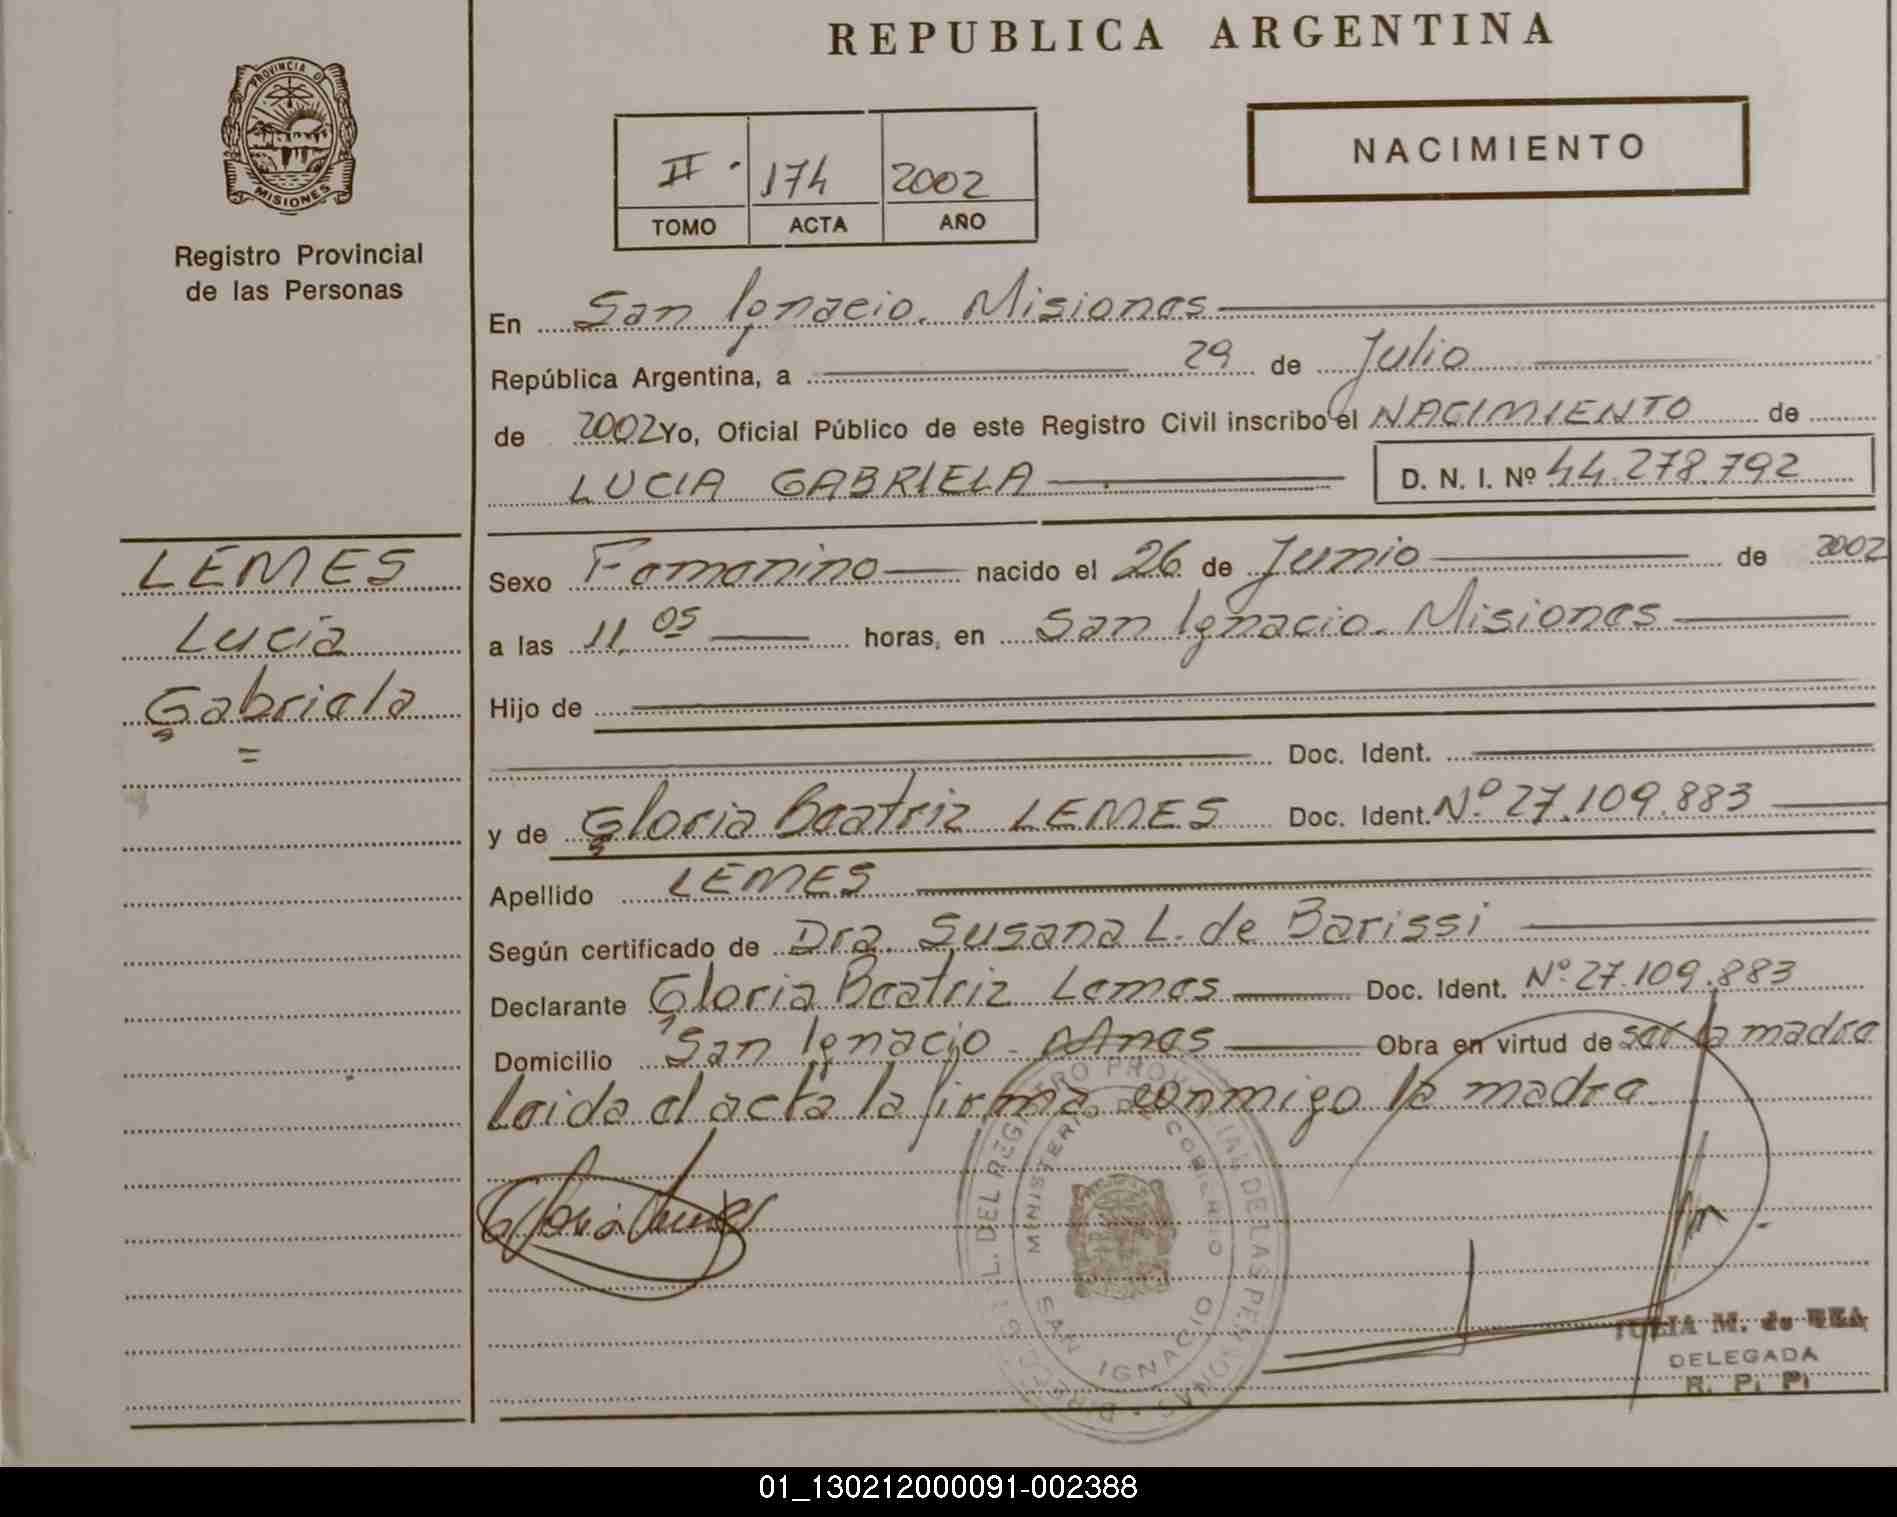 REPUBLICA ARGENTINA
PROVINCIA D
MISIONES
Registro Provincial
de las Personas
II. 174 2002
TOMO ACTA AÑO
NACIMIENTO
En San Ignacio. Misiones
República Argentina, a 29 de Julio
de 2002 Yo, Oficial Público de este Registro Civil inscribo el NACIMIENTO de
LUCIA GABRIELA D. N. I. Nº 44.278.792
LEMES
Lucia
Gabriela
Sexo Femenino nacido el 26 de Junio de 2002
a las 11,05 horas, en San Ignacio. Misiones
Hijo de
Doc. Ident.
y de Gloria Beatriz LEMES Doc. Ident. Nº 27.109.883
Apellido LEMES
Según certificado de Dra. Susana L. de Barissi
Declarante Gloria Beatriz Lemes Doc. Ident. Nº 27.109.883
Domicilio San Ignacio - Mnes Obra en virtud de ser la madre
Leida el acta la firma conmigo la madre
DEL REGISTRO PROVINCIAL DE LAS PERSONAS
MINISTERIO DE GOBIERNO
SAN IGNACIO
JULIA M. de REA
DELEGADA
R. P. P.
01_130212000091-002388